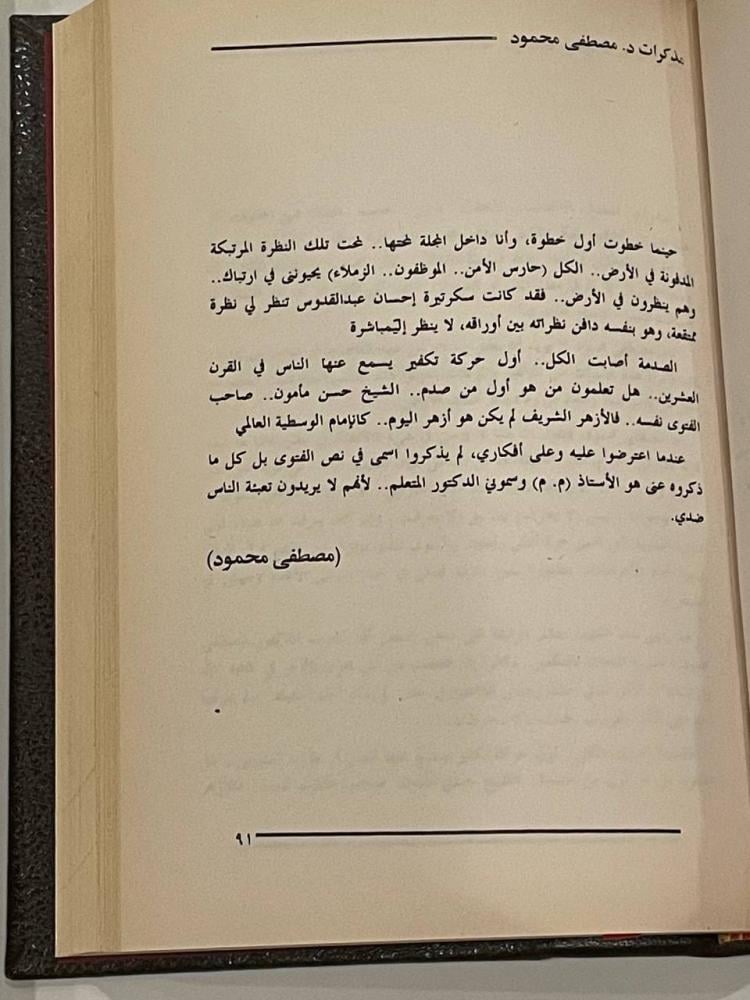 مذكرات د. مصطفى محمود
حينما خطوت أول خطوة، وأنا داخل المجلة لمحتها.. لمحت تلك النظرة المرتبكة
المدفونة في الأرض.. الكل (حارس الأمن.. الموظفون.. الزملاء) يحيوننى في ارتباك..
وهم ينظرون في الأرض.. فقد كانت سكرتيرة إحسان عبدالقدوس تنظر لي نظرة
ممتقعة، وهو بنفسه دافن نظراته بين أوراقه، لا ينظر إليمباشرة
الصدمة أصابت الكل.. أول حركة تكفير يسمع عنها الناس في القرن
العشرين.. هل تعلمون من هو أول من صدم.. الشيخ حسن مأمون.. صاحب
الفتوى نفسه.. فالأزهر الشريف لم يكن هو أزهر اليوم.. كانإمام الوسطية العالمي
عندما اعترضوا عليه وعلى أفكاري، لم يذكروا اسمى في نص الفتوى بل كل ما
ذكروه عنى هو الأستاذ (م. م) وسموني الدكتور المتعلم.. لأنهم لا يريدون تعبئة الناس
ضدي.
(مصطفى محمود)
٩١